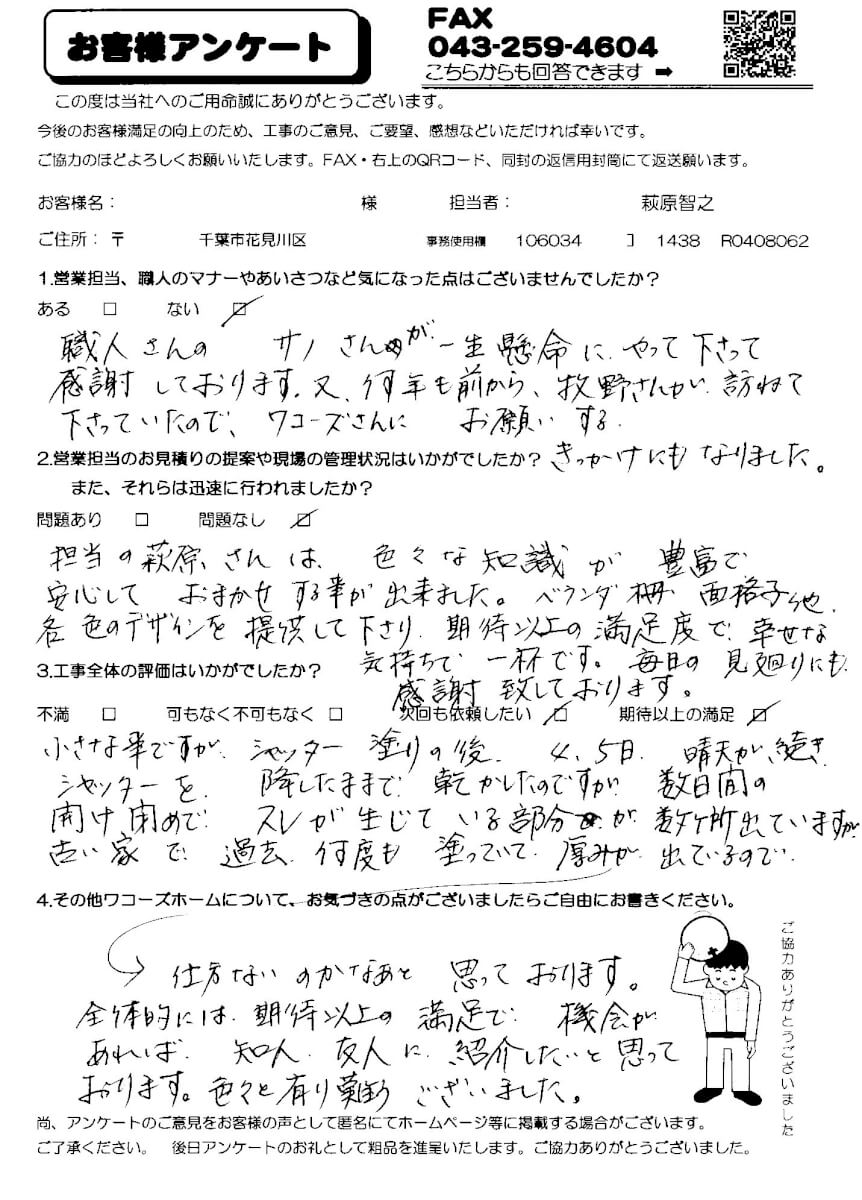 お客様アンケート
FAX
043-259-4604
こちらからも回答できます ➡
この度は当社へのご用命誠にありがとうございます。
今後のお客様満足の向上のため、工事のご意見、ご要望、感想などいただければ幸いです。
ご協力のほどよろしくお願いいたします。FAX・右上のQRコード、同封の返信用封筒にて返送願います。
お客様名： 様 担当者： 萩原智之
ご住所：〒 千葉市花見川区 事務使用欄 106034 コ 1438 R0408062
1.営業担当、職人のマナーやあいさつなど気になった点はございませんでしたか？
ある □ ない ☑
職人さんの サノさんが 一生懸命に やって下さって
感謝しております。又、何年も前から、牧野さんが訪ねて
下さっていたので、ワコーズさんに お願いする
2.営業担当のお見積りの提案や現場の管理状況はいかがでしたか？ きっかけにもなりました。
また、それらは迅速に行われましたか？
問題あり □ 問題なし ☑
担当の萩原さんは、色々な知識が 豊富で
安心して おまかせする事が出来ました。ベランダ柵 面格子他
各色のデザインを提供して下さり、期待以上の満足度で 幸せな
3.工事全体の評価はいかがでしたか？ 気持ちで一杯です。毎日の見廻りにも
感謝致しております。
不満 □ 可もなく不可もなく □ 次回も依頼したい ☑ 期待以上の満足 ☑
小さな事ですが、シャッター塗りの後、4、5日 晴天が続き
シャッターを 降したままで 乾かしたのですが 数日間の
開け閉めで スレが生じている部分が 数ヶ所出ていますが
古い家で 過去 何度も 塗っていて 厚みが出ているので
4.その他ワコーズホームについて、お気づきの点がございましたらご自由にお書きください。
仕方ないのかなあと 思っております。
全体的には 期待以上の満足で 機会が
あれば 知人、友人に 紹介したいと思って
おります。色々と有り難うございました。
ご協力ありがとうございました
尚、アンケートのご意見をお客様の声として匿名にてホームページ等に掲載する場合がございます。
ご了承ください。 後日アンケートのお礼として粗品を進呈いたします。ご協力ありがとうございました。